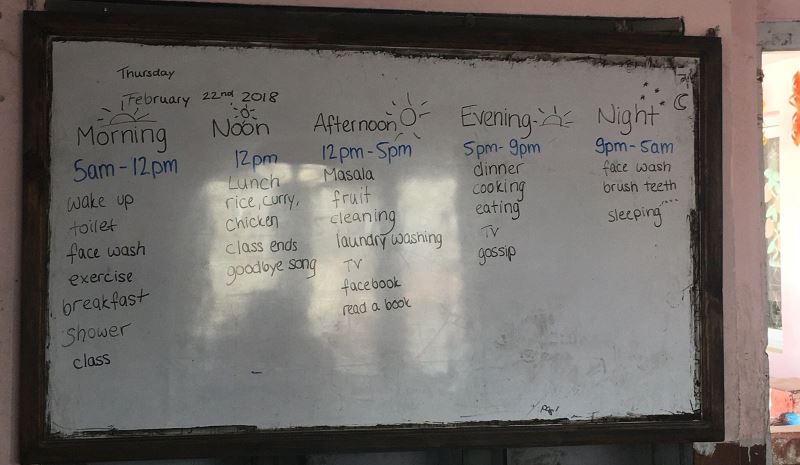 Thursday
February 22nd 2018
Morning
5am-12pm
wake up
toilet
face wash
exercise
breakfast
shower
class
Noon
12pm
Lunch
rice, curry,
chicken
class ends
goodbye song
Afternoon
12pm-5pm
Masala
fruit
cleaning
laundry washing
TV
facebook
read a book
Evening
5pm-9pm
dinner
cooking
eating
TV
gossip
Night
9pm-5am
face wash
brush teeth
sleeping